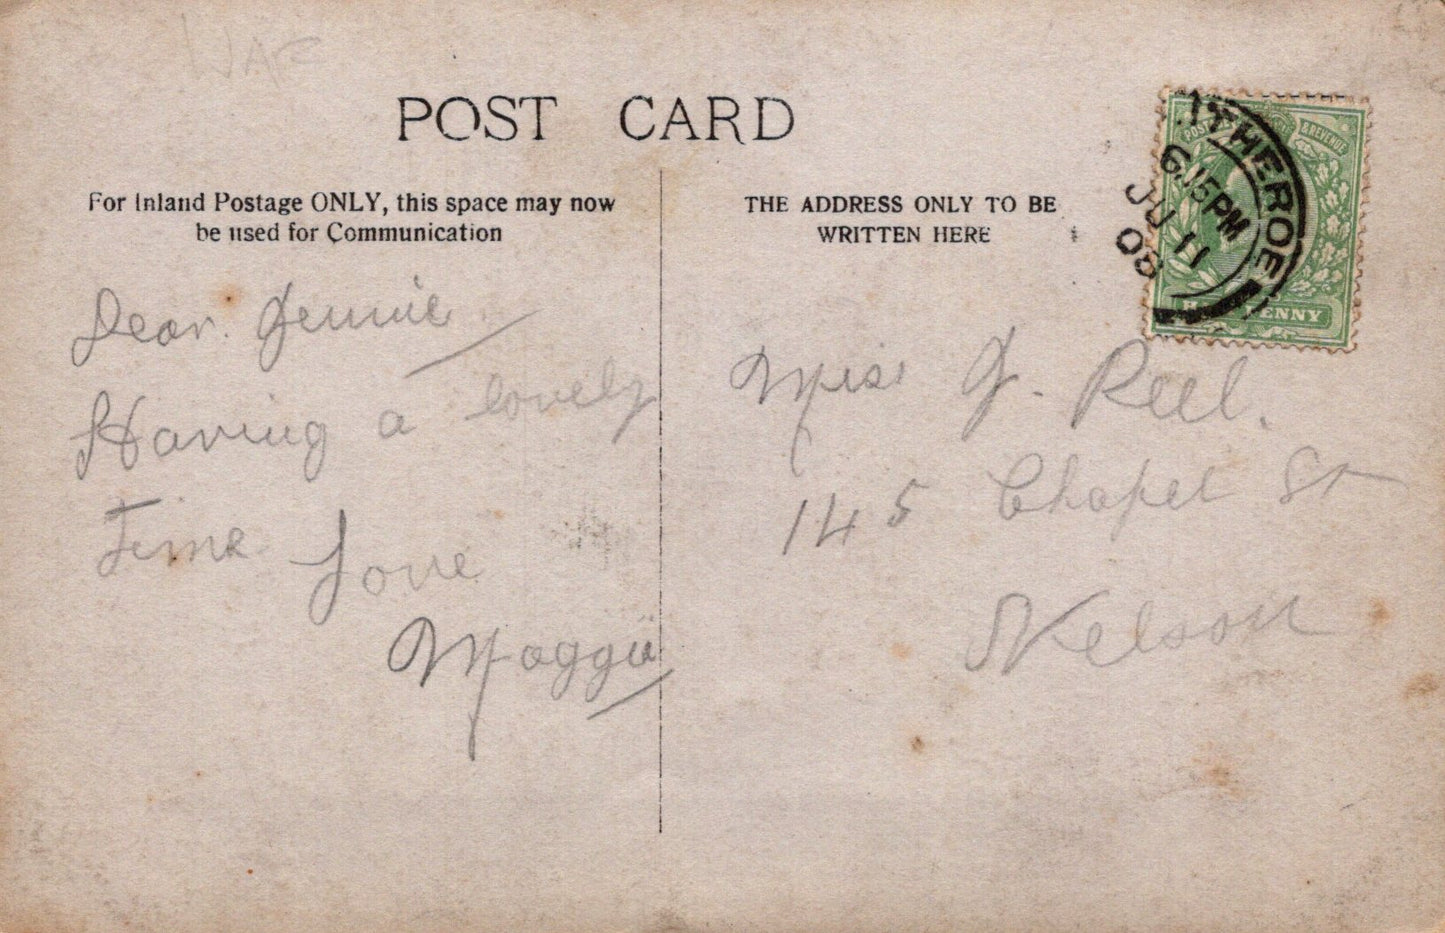 WAF
POST CARD
For Inland Postage ONLY, this space may now
be used for Communication
THE ADDRESS ONLY TO BE
WRITTEN HERE
POSTAGE & REVENUE
HALFPENNY
ITHEROE
6.15PM
JU 11
08
Dear. Jennie
Having a lovely
Time Love
Maggie
Miss J. Peel.
145 Chapel St
Nelson